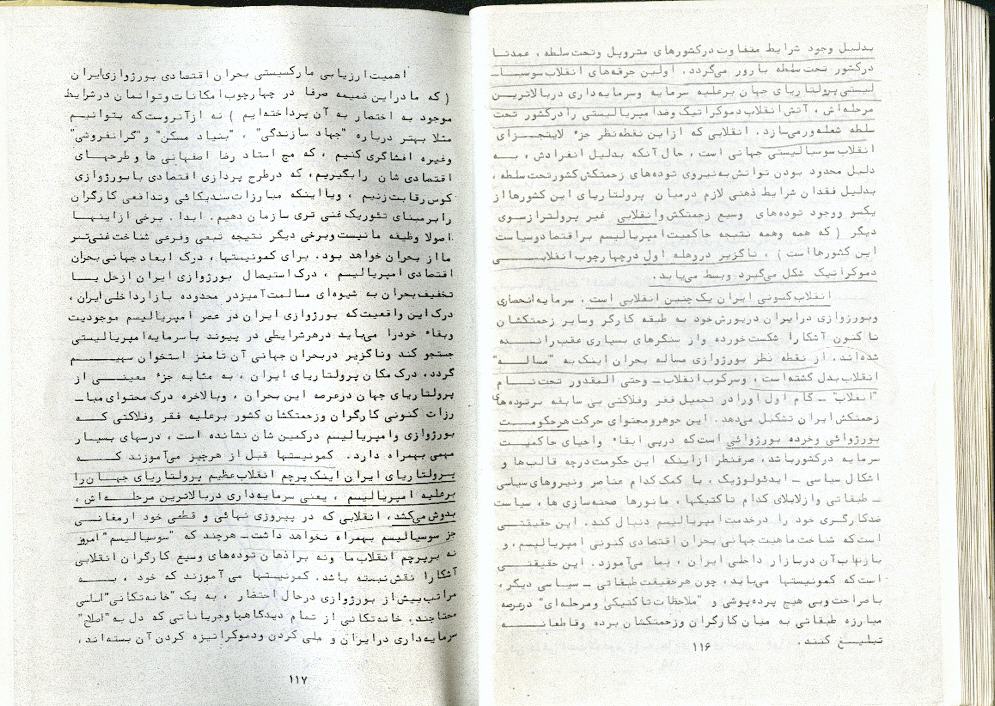 بدلیل وجود شرایط متفاوت درکشورهای متروپل وتحت سلطه ، عمدتا
درکشور تحت سلطه بارور می‌گردد. اولین جرقه‌های انقلاب سوسیا-
لیستی پرولتاریای جهان برعلیه سرمایه وسرمایه‌داری دربالاترین
مرحله‌اش ، آتش انقلاب دموکراتیک وضدامپریالیستی رادرکشور تحت
سلطه شعله‌ورمی‌سازد. انقلابی که ازاین نقطه‌نظر جزء لاینجزای
انقلاب سوسیالیستی جهانی است ، حال آنکه بدلیل انفرادش ، به
دلیل محدود بودن توانش به‌نیروی توده‌های زحمتکش کشورتحت سلطه ،
بدلیل فقدان شرایط ذهنی لازم درمیان پرولتاریای این کشورها از
یکسو ووجود توده‌های وسیع زحمتکش وانقلابی غیر پرولتر ازسوی
دیگر ( که همه وهمه نتیجه حاکمیت امپریالیسم براقتصادوسیاست
این کشورهااست ) ، ناگزیر دروهله اول درچهارچوب انقلابـــی
دموکراتیک شکل می‌گیرد وبسط می‌یابد.
انقلاب کنونی ایران یک چنین انقلابی است . سرمایه‌انحصاری
وبورژوازی درایران دریورش خود به طبقه کارگر وسایر زحمتکشان
تا کنون آشکارا شکست خورده واز سنگرهای بسیاری عقب رانــده
شده‌اند. از نقطه نظر بورژوازی مساله بحران اینک به "مسالـــه"
انقلاب بدل گشته‌است ، وسرکوب انقلاب ـ وحتی المقدور تحت نــام
"انقلاب" ـ گام اول اورادر تحمیل فقر وفلاکتی بی سابقه برتوده‌های
زحمتکش ایران تشکیل می‌دهد. این جوهرومحتوای حرکت هرحکومــت
بورژوائی وخرده بورژوائی است که درپی ابقاء واحیای حاکمیت
سرمایه درکشورباشد، صرفنظر ازاینکه این حکومت درچه قالب‌ها و
اشکال سیاسی ـ ایدئولوژیک ، با کمک کدام عناصر ونیروهای سیاسی
ـ طبقاتی وازلابلای کدام تاکتیکها ، مانورها صحنه‌سازی ها ، سیاست
ضدکارگری خود را درخدمت امپریالیسم دنبال کند. این حقیقتــی
است که شناخت ماهیت جهانی بحران اقتصادی کنونی امپریالیسم ، و
بازتاب آن دربازار داخلی ایران ، بما می‌آموزد. این حقیقتــی
است که کمونیستها می‌باید ، چون هرحقیقت طبقاتی ـ سیاسی دیگر ،
باصراحت وبی هیچ پرده‌پوشی و "ملاحظات تاکتیکی ومرحله‌ای" درعرصه
مبارزه طبقاتی به میان کارگران وزحمتکشان برده وقاطعانــــه
تبلیــغ کنند .
۱۱۶
اهمیت ارزیابی مارکسیستی بحران اقتصادی بورژوازی‌ایران
( که مادراین ضمیمه صرفا در چهارچوب امکانات وتوانمان درشرایط
موجود به اختصار به آن پرداخته‌ایم ) نه ازآنروست که بتوانیم
مثلا بهتر درباره "جهاد سازندگی" ، "بنیاد مسکن" و "گرانفروشی"
وغیره افشاگری کنیم ، که مچ استاد رضا اصفهانی ها وطرحهای
اقتصادی شان رابگیریم، که درطرح پردازی اقتصادی بابورژوازی
کوس رقابت زنیم ، ویااینکه مبارزات سندیکائی وتدافعی کارگران
را برمبنای تئوریک غنی تری سازمان دهیم. ابدا. برخی ازاینهــا
اصولا وظیفه مانیست وبرخی دیگر نتیجه تبعی وفرعی شناخت غنی‌تــر
ما از بحران خواهد بود. برای کمونیستها، درک ابعاد جهانی بحران
اقتصادی امپریالیسم ، درک استیصال بورژوازی ایران ازحل یــا
تخفیف بحران به شیوه‌ای مسالمت آمیزدر محدوده بازارداخلی ایران،
درک این واقعیت که بورژوازی ایران در عصر امپریالیسم موجودیت
وبقاء خودرا می‌باید درهرشرایطی در پیوند باسرمایه‌امپریالیستی
جستجو کند وناگزیر دربحران جهانی آن تامغز استخوان سهیـــم
گردد، درک مکان پرولتاریای ایران ، به مثابه جزء معینــی از
پرولتاریای جهان درعرصه این بحران ، وبالاخره درک محتوای مبا-
رزات کنونی کارگران وزحمتکشان کشور برعلیه فقر وفلاکتی کــه
بورژوازی وامپریالیسم درکمین شان نشانده است ، درسهای بسیار
مهمی بهمراه دارد. کمونیستها قبل از هرچیز می‌آموزند کــه
پرولتاریای ایران اینک پرچم انقلاب عظیم پرولتاریای جهــان را
برعلیه امپریالیسم ، یعنی سرمایه‌داری دربالاترین مرحلــه‌اش ،
بدوش می‌کشد ، انقلابی که در پیروزی نهائی و قطعی خود ارمغانــی
جز سوسیالیسم بهمراه نخواهد داشت ـ هرچند که "سوسیالیسم" امروز
نه برپرچم انقلاب ما ونه براذهان توده‌های وسیع کارگران انقلابی
آشکارا نقش نبسته باشد. کمونیستها می‌آموزند که خود ، بـــه
مراتب بیش از بورژوازی درحال احتضار ، به یک "خانه‌تکانی" اساسی
محتاجند. خانه‌تکانی از تمام دیدگاهها وجریاناتی که دل به "اصلاح"
سرمایه‌داری درایران و ملی کردن ودموکراتیزه کردن آن بسته‌اند ،
۱۱۷